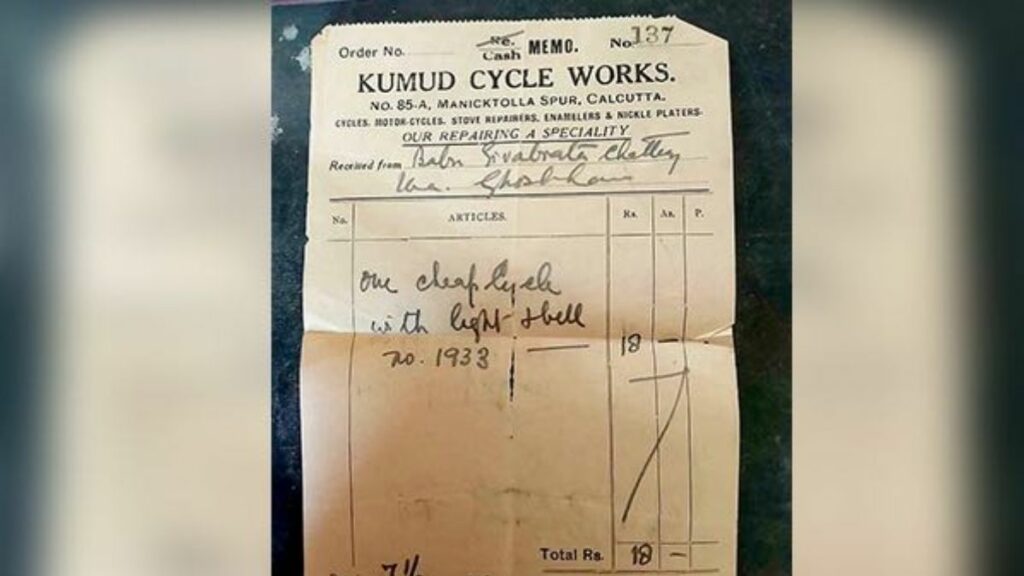 Order No.
Re.
Cash MEMO. No. 137
KUMUD CYCLE WORKS.
NO. 85-A, MANICKTOLLA SPUR, CALCUTTA.
CYCLES. MOTOR-CYCLES. STOVE REPAIRERS, ENAMELERS & NICKLE PLATERS.
OUR REPAIRING A SPECIALITY
Received from Babu Sivabrata
No. ARTICLES. Rs. As. P.
one cheap Cycle
with light & bell
no. 1933 — 18 —
Total Rs. 18 —